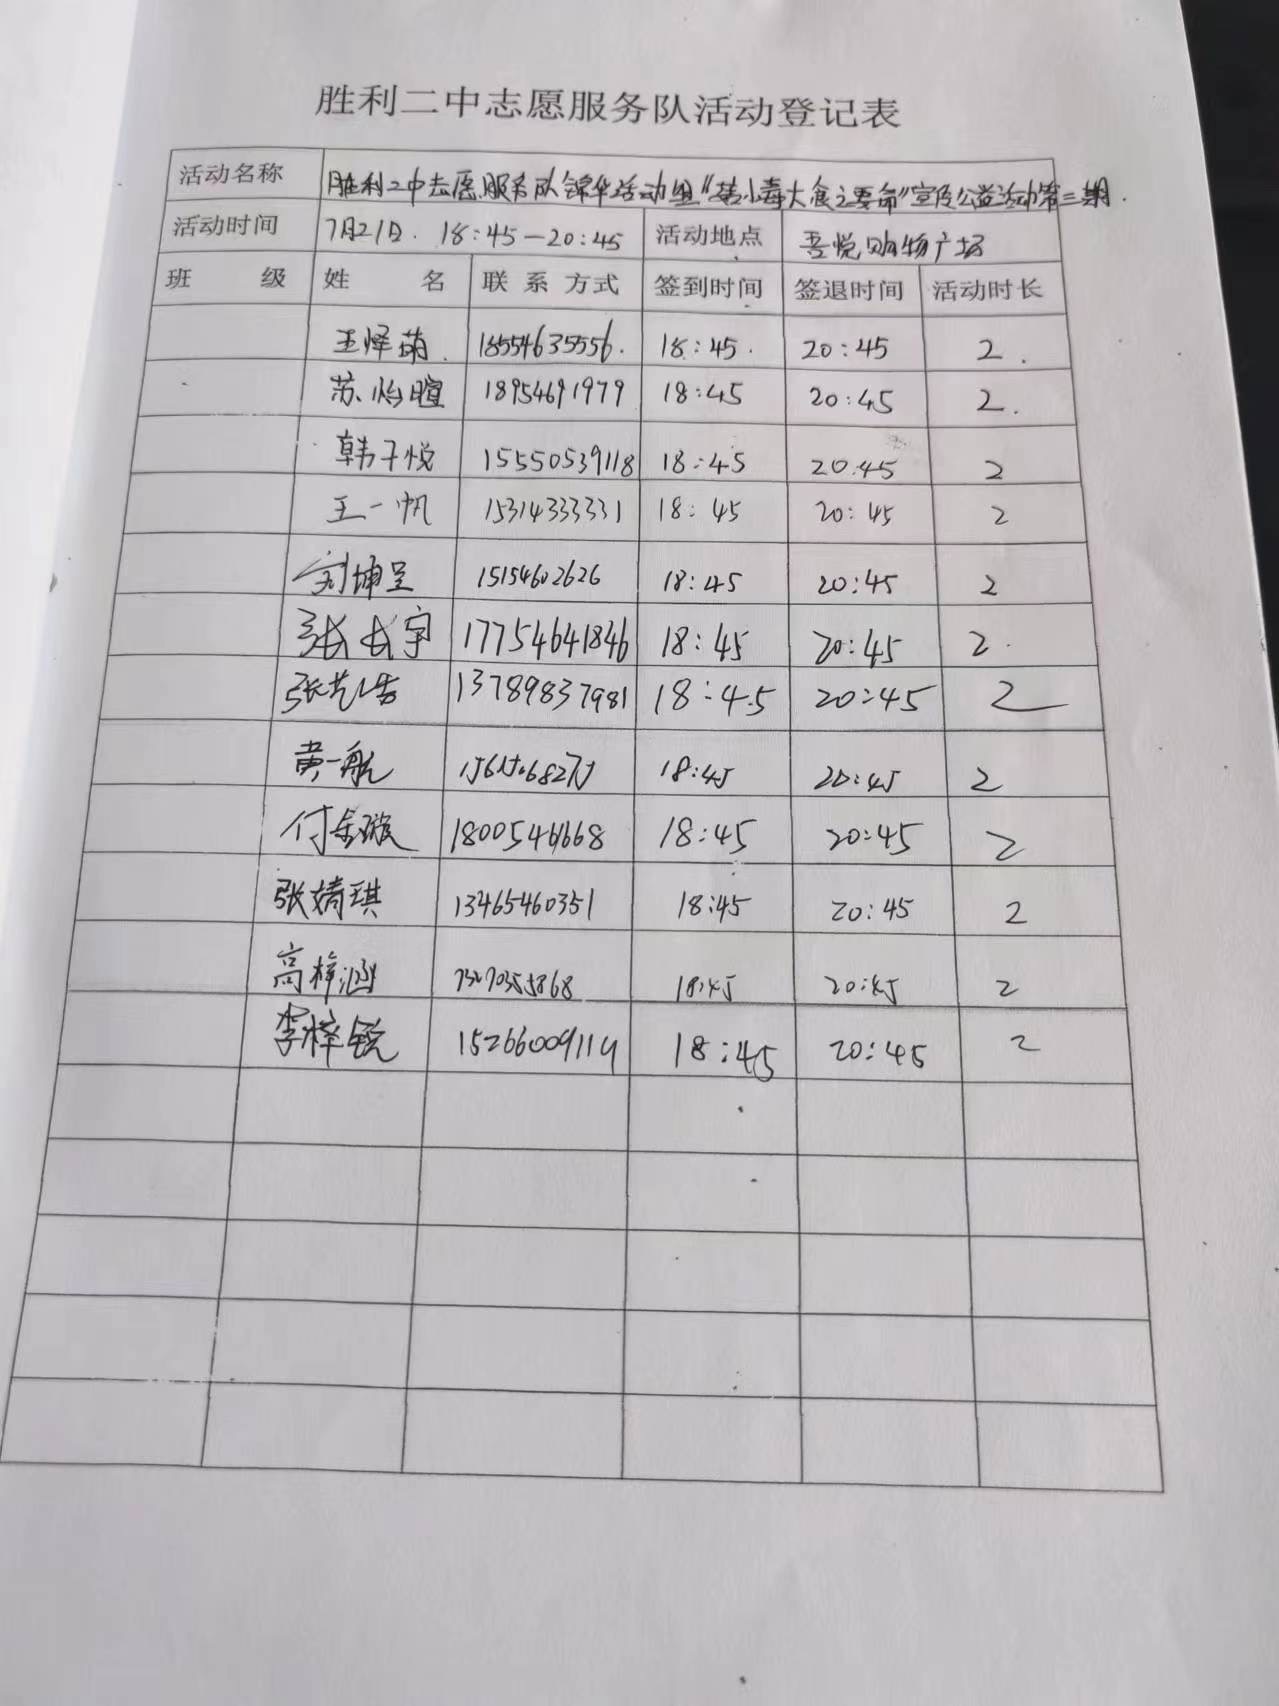 胜利二中志愿服务队活动登记表
活动名称 胜利二中志愿服务队锦华活动组 宣传公益活动第三期.
活动时间 7月21日. 18:45—20:45 活动地点 吾悦购物广场
班 级 姓 名 联 系 方式 签到时间 签退时间 活动时长
王怿萌. 18554635556. 18:45. 20:45 2.
苏怡暄 18954691979 18:45 20:45 2.
韩子悦 15550539118 18:45 20:45 2
王一帆 15314333331 18:45 20:45 2
刘坤呈 15154602626 18:45 20:45 2
张长宇 17754641846 18:45 20:45 2.
13789837981 18:45 20:45 2
黄一航 18:45 20:45 2
18:45 20:45 2
张婧琪 13465460351 18:45 20:45 2
高梓涵 18:45 20:45 2
李梓锐 18:45 20:45 2